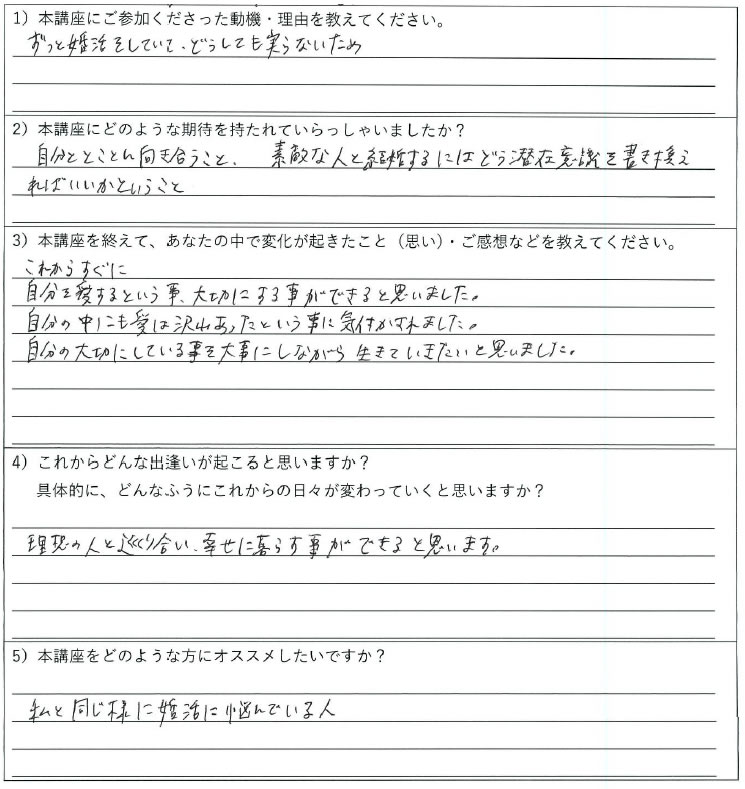 1）本講座にご参加くださった動機・理由を教えてください。
ずっと婚活をしていて、どうしても実らないため
2）本講座にどのような期待を持たれていらっしゃいましたか？
自分ととことん向き合うこと、　素敵な人と結婚するにはどう潜在意識を書き換え
ればいいかということ
3）本講座を終えて、あなたの中で変化が起きたこと（思い）・ご感想などを教えてください。
これからすぐに
自分を愛するという事、大切にする事ができると思いました。
自分の中にも愛は沢山あったという事に気付かされました。
自分の大切にしている事を大事にしながら 生きていきたいと思いました。
4）これからどんな出逢いが起こると思いますか？
具体的に、どんなふうにこれからの日々が変わっていくと思いますか？
理想の人と巡り合い、幸せに暮らす事ができると思います。
5）本講座をどのような方にオススメしたいですか？
私と同じ様に婚活に悩んでいる人